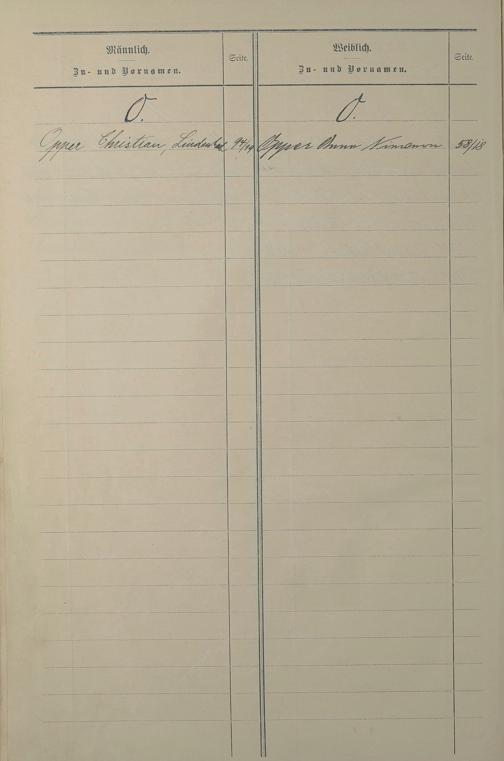 Männlich.
Zu- und Vornamen.
Seite.
Weiblich.
Zu- und Vornamen.
Seite.
O.
O.
Opper Christian,
Opper Anna 58/18